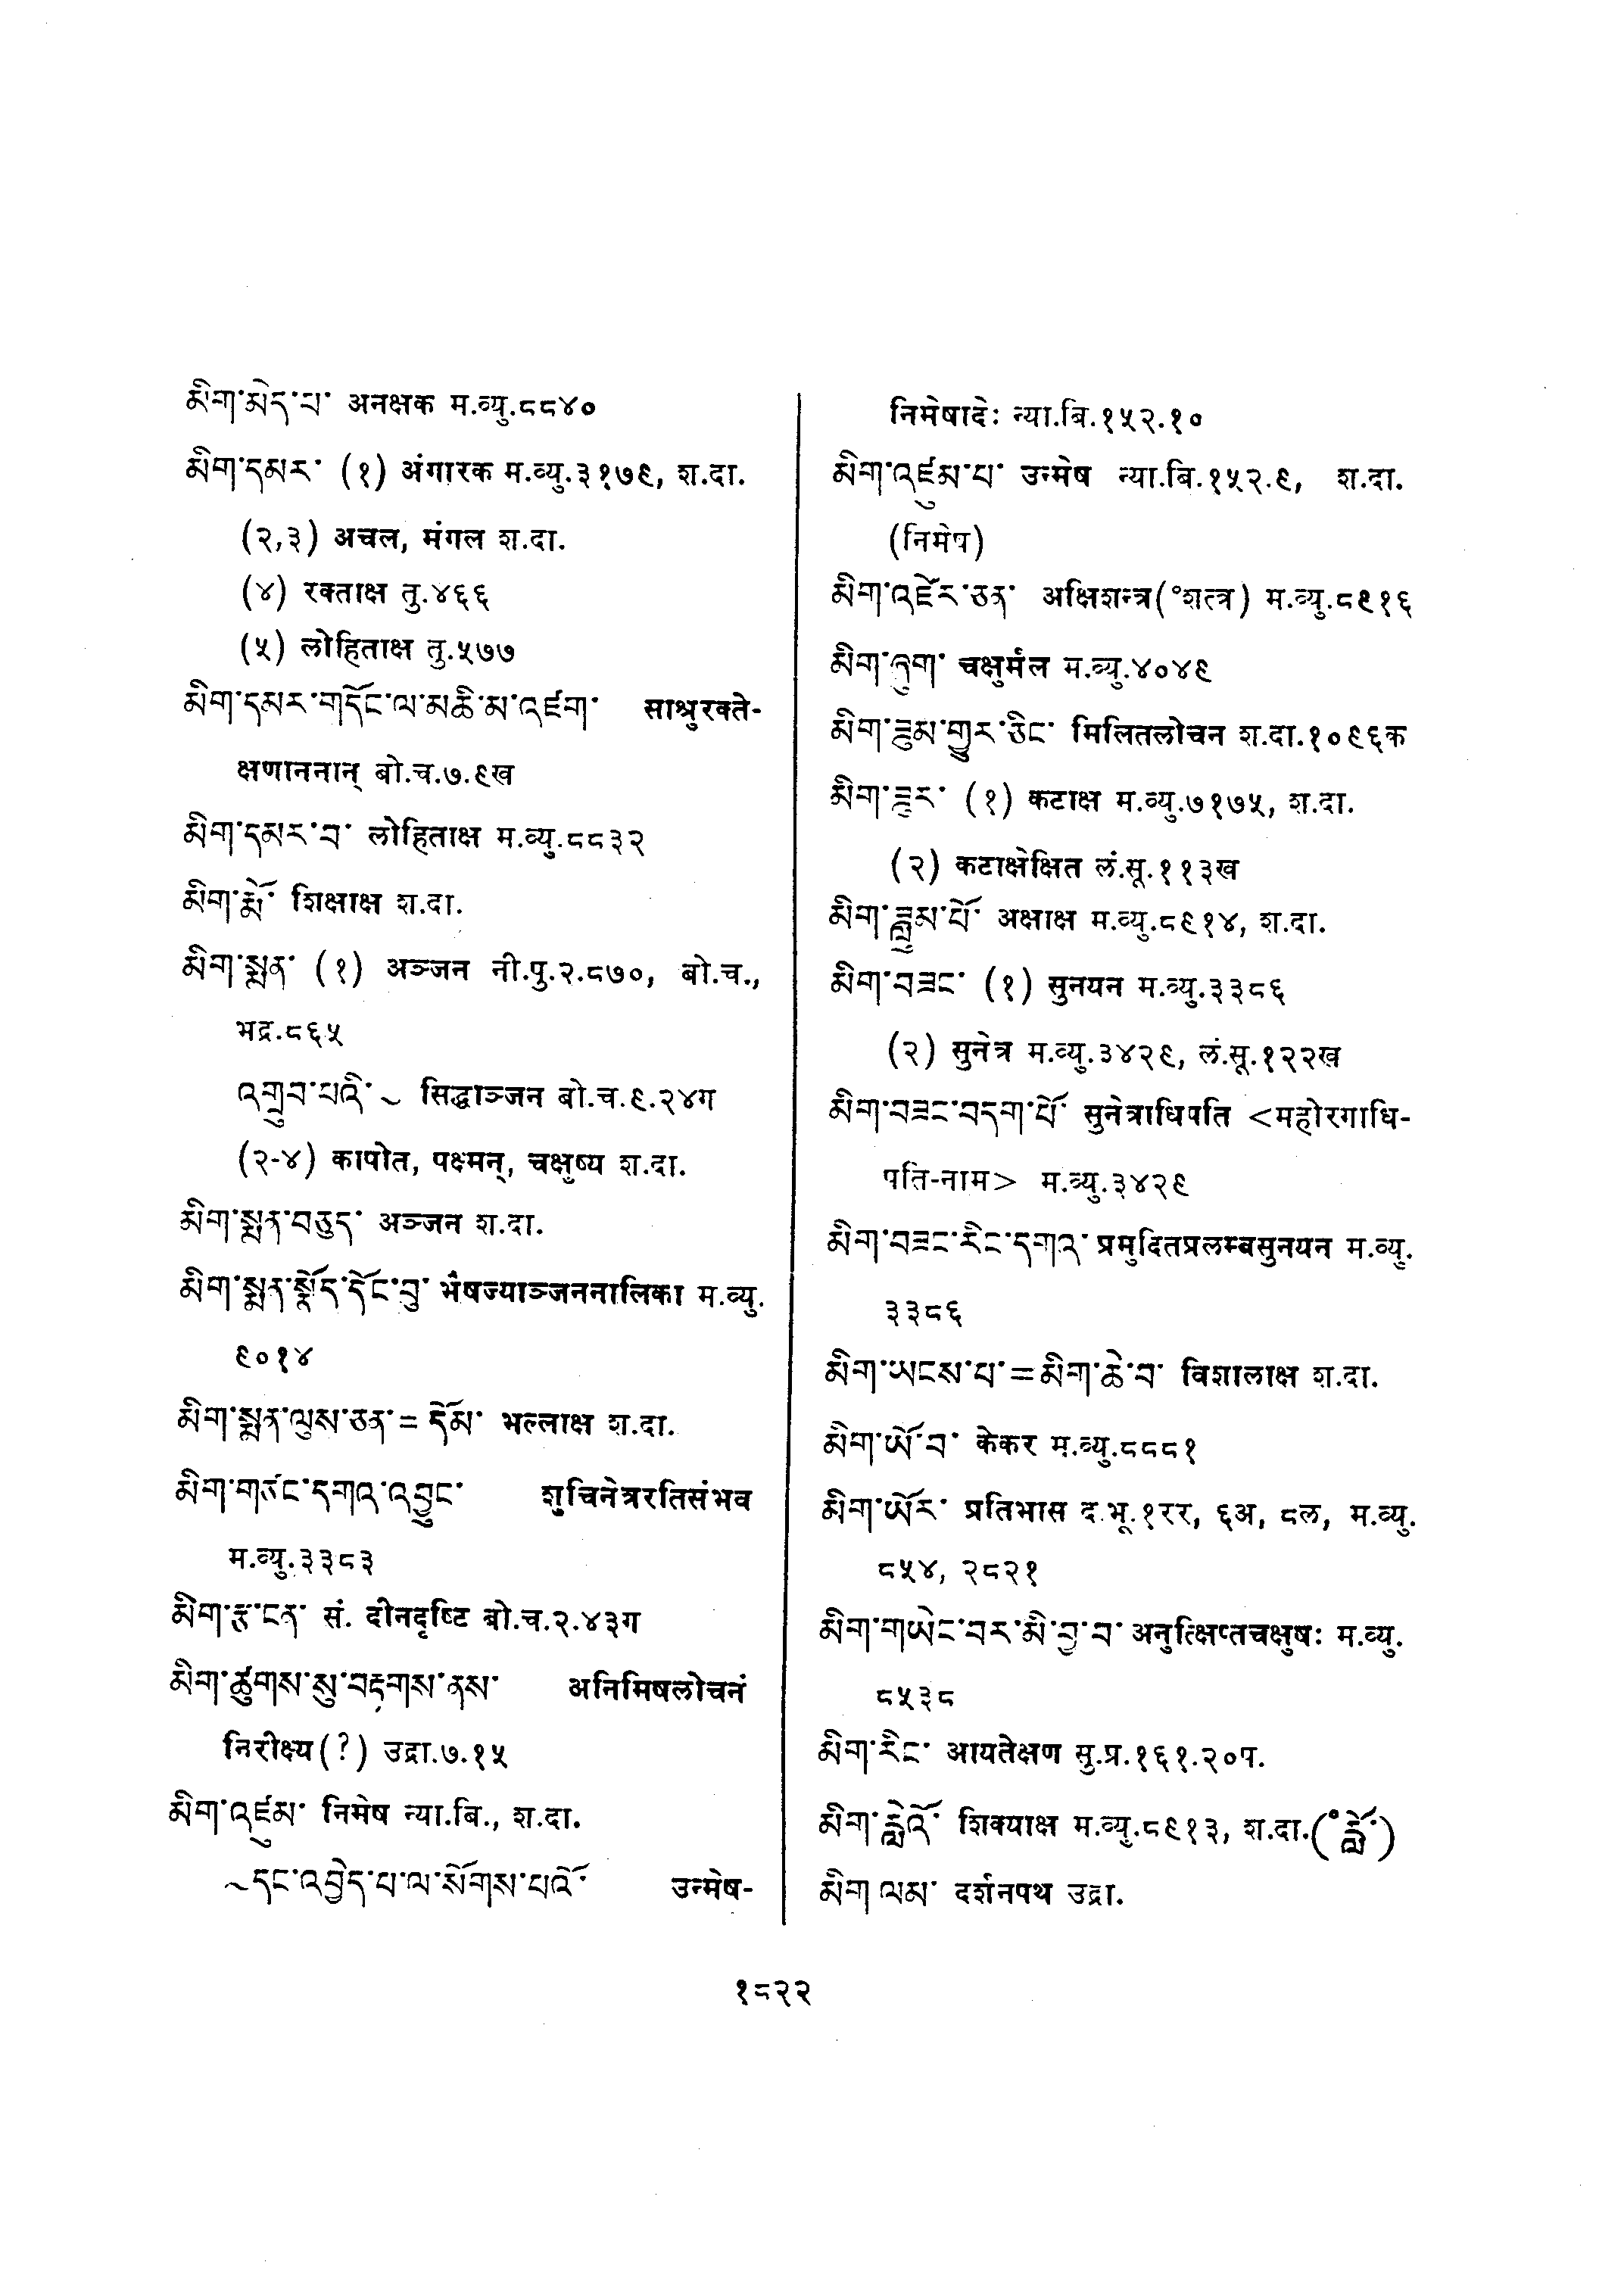 མིག་མེད་པ་ अनक्षक म.व्यु.८८४०
མིག་དམར་ (१) अंगारक म.व्यु.३१७९, श.दा.
(२,३) अचल, मंगल श.दा.
(४) रक्ताक्ष तु.४६६
(५) लोहिताक्ष तु.५७७
མིག་དམར་གདོང་ལ་མཆི་མ་འཛག་ साश्रुरक्ते-
क्षणाननान् बो.च.७.९ख
མིག་དམར་བ་ लोहिताक्ष म.व्यु.८८३२
མིག་རྨོ་ शिक्षाक्ष श.दा.
མིག་སྨན་ (१) अञ्जन नी.पु.२.८७०, बो.च.,
भद्र.८६५
འགྲུབ་པའི་~ सिद्धाञ्जन बो.च.९.२४ग
(२-४) कापोत, पक्ष्मन्, चक्षुष्य श.दा.
མིག་སྨན་བཅུད་ अञ्जन श.दा.
མིག་སྨན་སྣོད་དོང་བུ་ भैषज्याञ्जननालिका म.व्यु.
९०१४
མིག་སྨན་ལུས་ཅན་= དོམ་ भल्लाक्ष श.दा.
མིག་གཙང་དགའ་འབྱུང་ शुचिनेत्ररतिसंभव
म.व्यु.३३८३
མིག་རྩ་ངན་ सं. दीनदृष्टि बो.च.२.४३ग
མིག་ཚུགས་སུ་བརྟགས་ནས་ अनिमिषलोचनं
निरीक्ष्य(?) उद्रा.७.१५
མིག་འཛུམ་ निमेष न्या.बि., श.दा.
~དང་འབྱེད་པ་ལ་སོགས་པའོ་ उन्मेष-
निमेषादेः न्या.बि.१५२.१०
མིག་འཛུམ་པ་ उन्मेष न्या.बि.१५२.९, श.दा.
(निमेष)
མིག་འཛེར་ཅན་ अक्षिशन्त्र(°शत्त्र) म.व्यु.८९१६
མིག་ཉུག་ चक्षुर्मल म.व्यु.४०४९
མིག་ཟུམ་གྱུར་ཅིང་ मिलितलोचन श.दा.१०९६क
མིག་ཟུར་ (१) कटाक्ष म.व्यु.७१७५, श.दा.
(२) कटाक्षेक्षित लं.सू.११३ख
མིག་ཟླུམ་པོ་ अक्षाक्ष म.व्यु.८९१४, श.दा.
མིག་བཟང་ (१) सुनयन म.व्यु.३३८६
(२) सुनेत्र म.व्यु.३४२९, लं.सू.१२२ख
མིག་བཟང་བདག་པོ་ सुनेत्राधिपति <महोरगाधि-
पति-नाम> म.व्यु.३४२९
མིག་བཟང་རིང་དགའ་ प्रमुदितप्रलम्बसुनयन म.व्यु.
३३८६
མིག་ཡངས་པ་=མིག་ཆེ་བ་ विशालाक्ष श.दा.
མིག་ཡོ་བ་ केकर म.व्यु.८८८१
མིག་ཡོར་ प्रतिभास द.भू.१रर, ६अ, ८ल, म.व्यु.
८५४, २८२१
མིག་གཡེང་བར་མི་བྱ་བ་ अनुत्क्षिप्तचक्षुषः म.व्यु.
८५३८
མིག་རིང་ आयतेक्षण सु.प्र.१६१.२०प.
མིག་རློའོ་ शिक्याक्ष म.व्यु.८९१३, श.दा.(°རློ་)
མིག་ལམ་ दर्शनपथ उद्रा.
१८२२